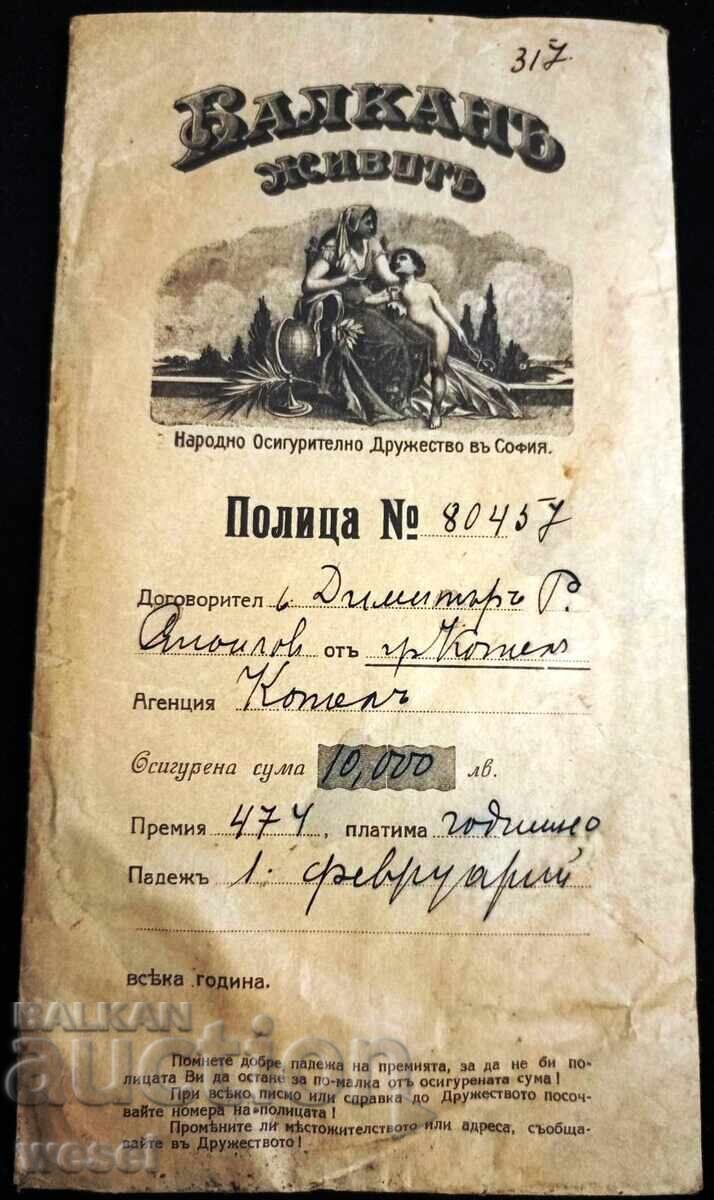 317.
Балканъ
животъ
Народно Осигурително Дружество въ София.
Полица № 80457
Договорител Димитъръ Р.
отъ гр Котелъ
Агенция Котелъ
Осигурена сума 10,000 лв.
Премия 474, платима годишно
Падежъ 1. февруарий
всѣка година.
Помнете добре падежа на премията, за да не би по-
лицата Ви да остане за по-малка отъ осигурената сума!
При всѣко писмо или справка до Дружеството посоч-
вайте номера на полицата!
Промѣните ли мѣстожителството или адреса, съобща-
вайте въ Дружеството!
BALKAN
auction
wesel